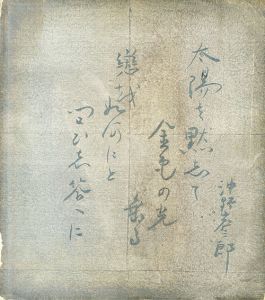 太陽を黙して
金色の光
乗る
戀
如何にと
問ひし答へに
沖野岩三郎